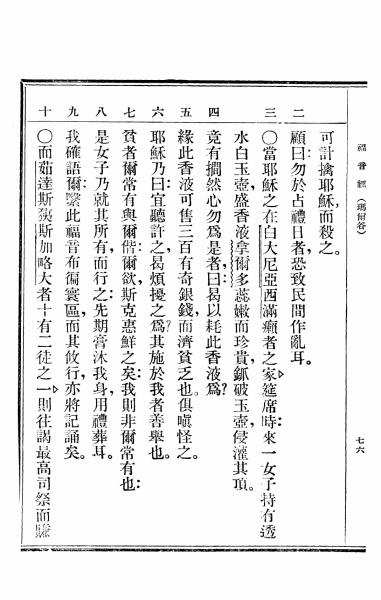 福音經(瑪爾谷)
七六
可計擒耶穌而殺之。
二 顧曰勿於占禮日者恐致民間作亂耳。
三 〇當耶穌之在白大尼亞西滿癩者之家筵席時來一女子持有透
水白玉壺盛香液拿爾多蕊嫩而珍貴鈲破玉壺侵灌其頂。
四 竟有擱然心勿爲是者曰曷以耗此香液爲?
五 緣此香液可售三百有奇銀錢而濟貧乏也俱嗔怪之。
六 耶穌乃曰宜聽許之曷煩擾之爲?其施於我者善舉也。
七 貧者爾常有與爾偕爾欲斯克惠鮮之矣我則非爾常有也
八 是女子乃就其所有而行之先期膏沐我身用禮葬耳。
九 我確語爾繄此福音布徧寰區而其攸行亦將記誦矣。
十 〇而茹達斯裌斯加略大者十有二徒之一則往謁最高司祭而賺